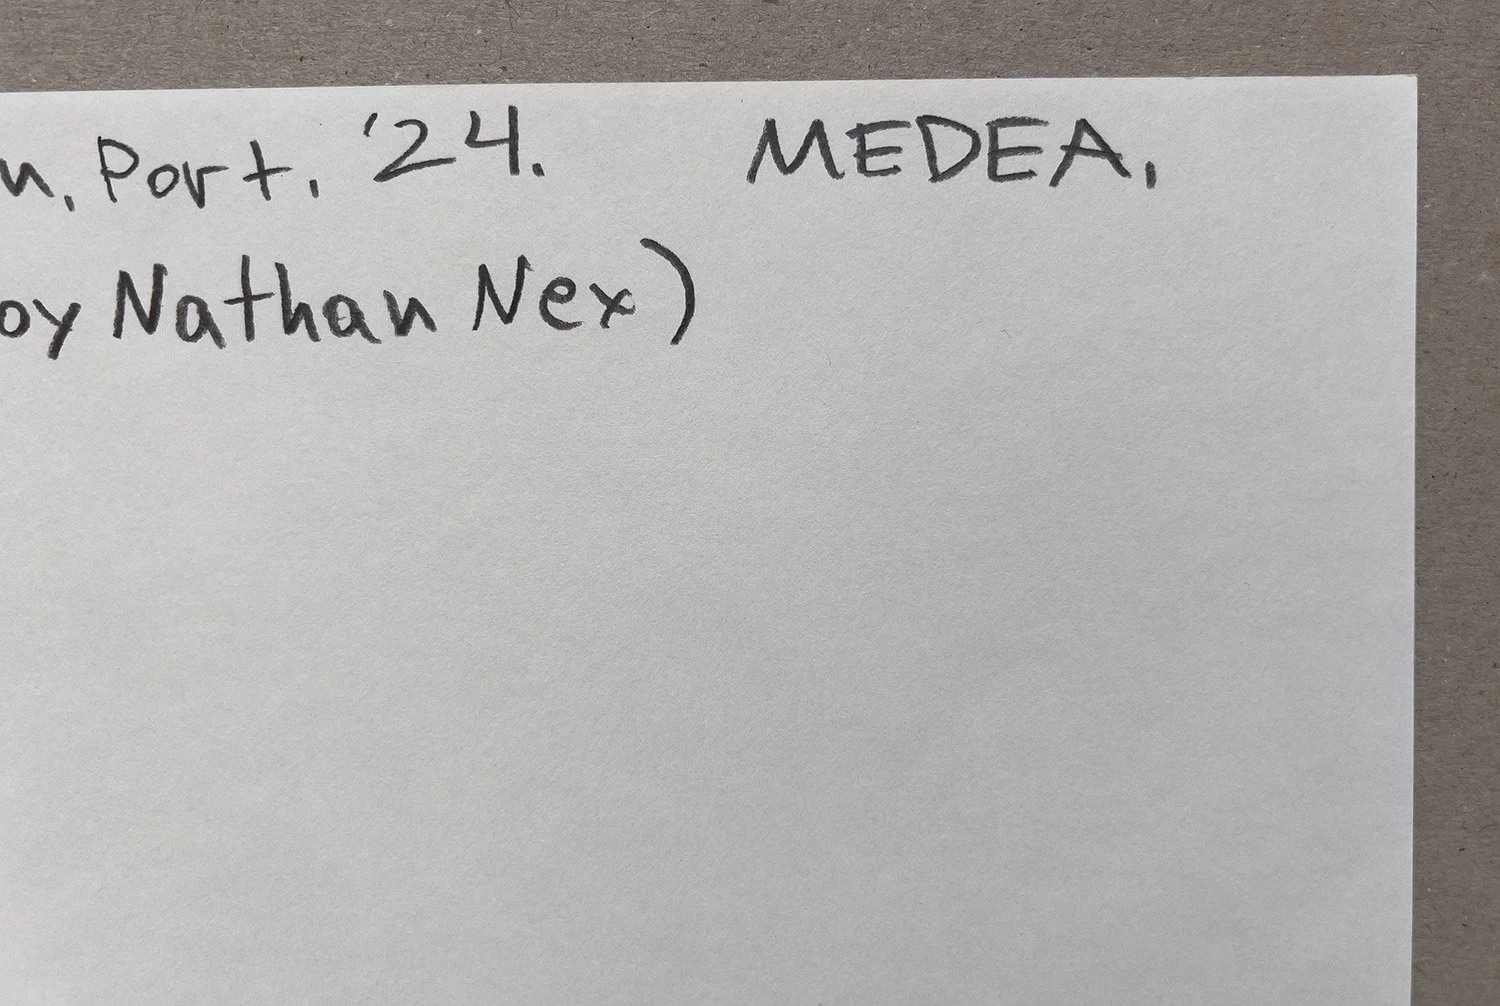 n, Port. '24. MEDEA.
by Nathan Nex)